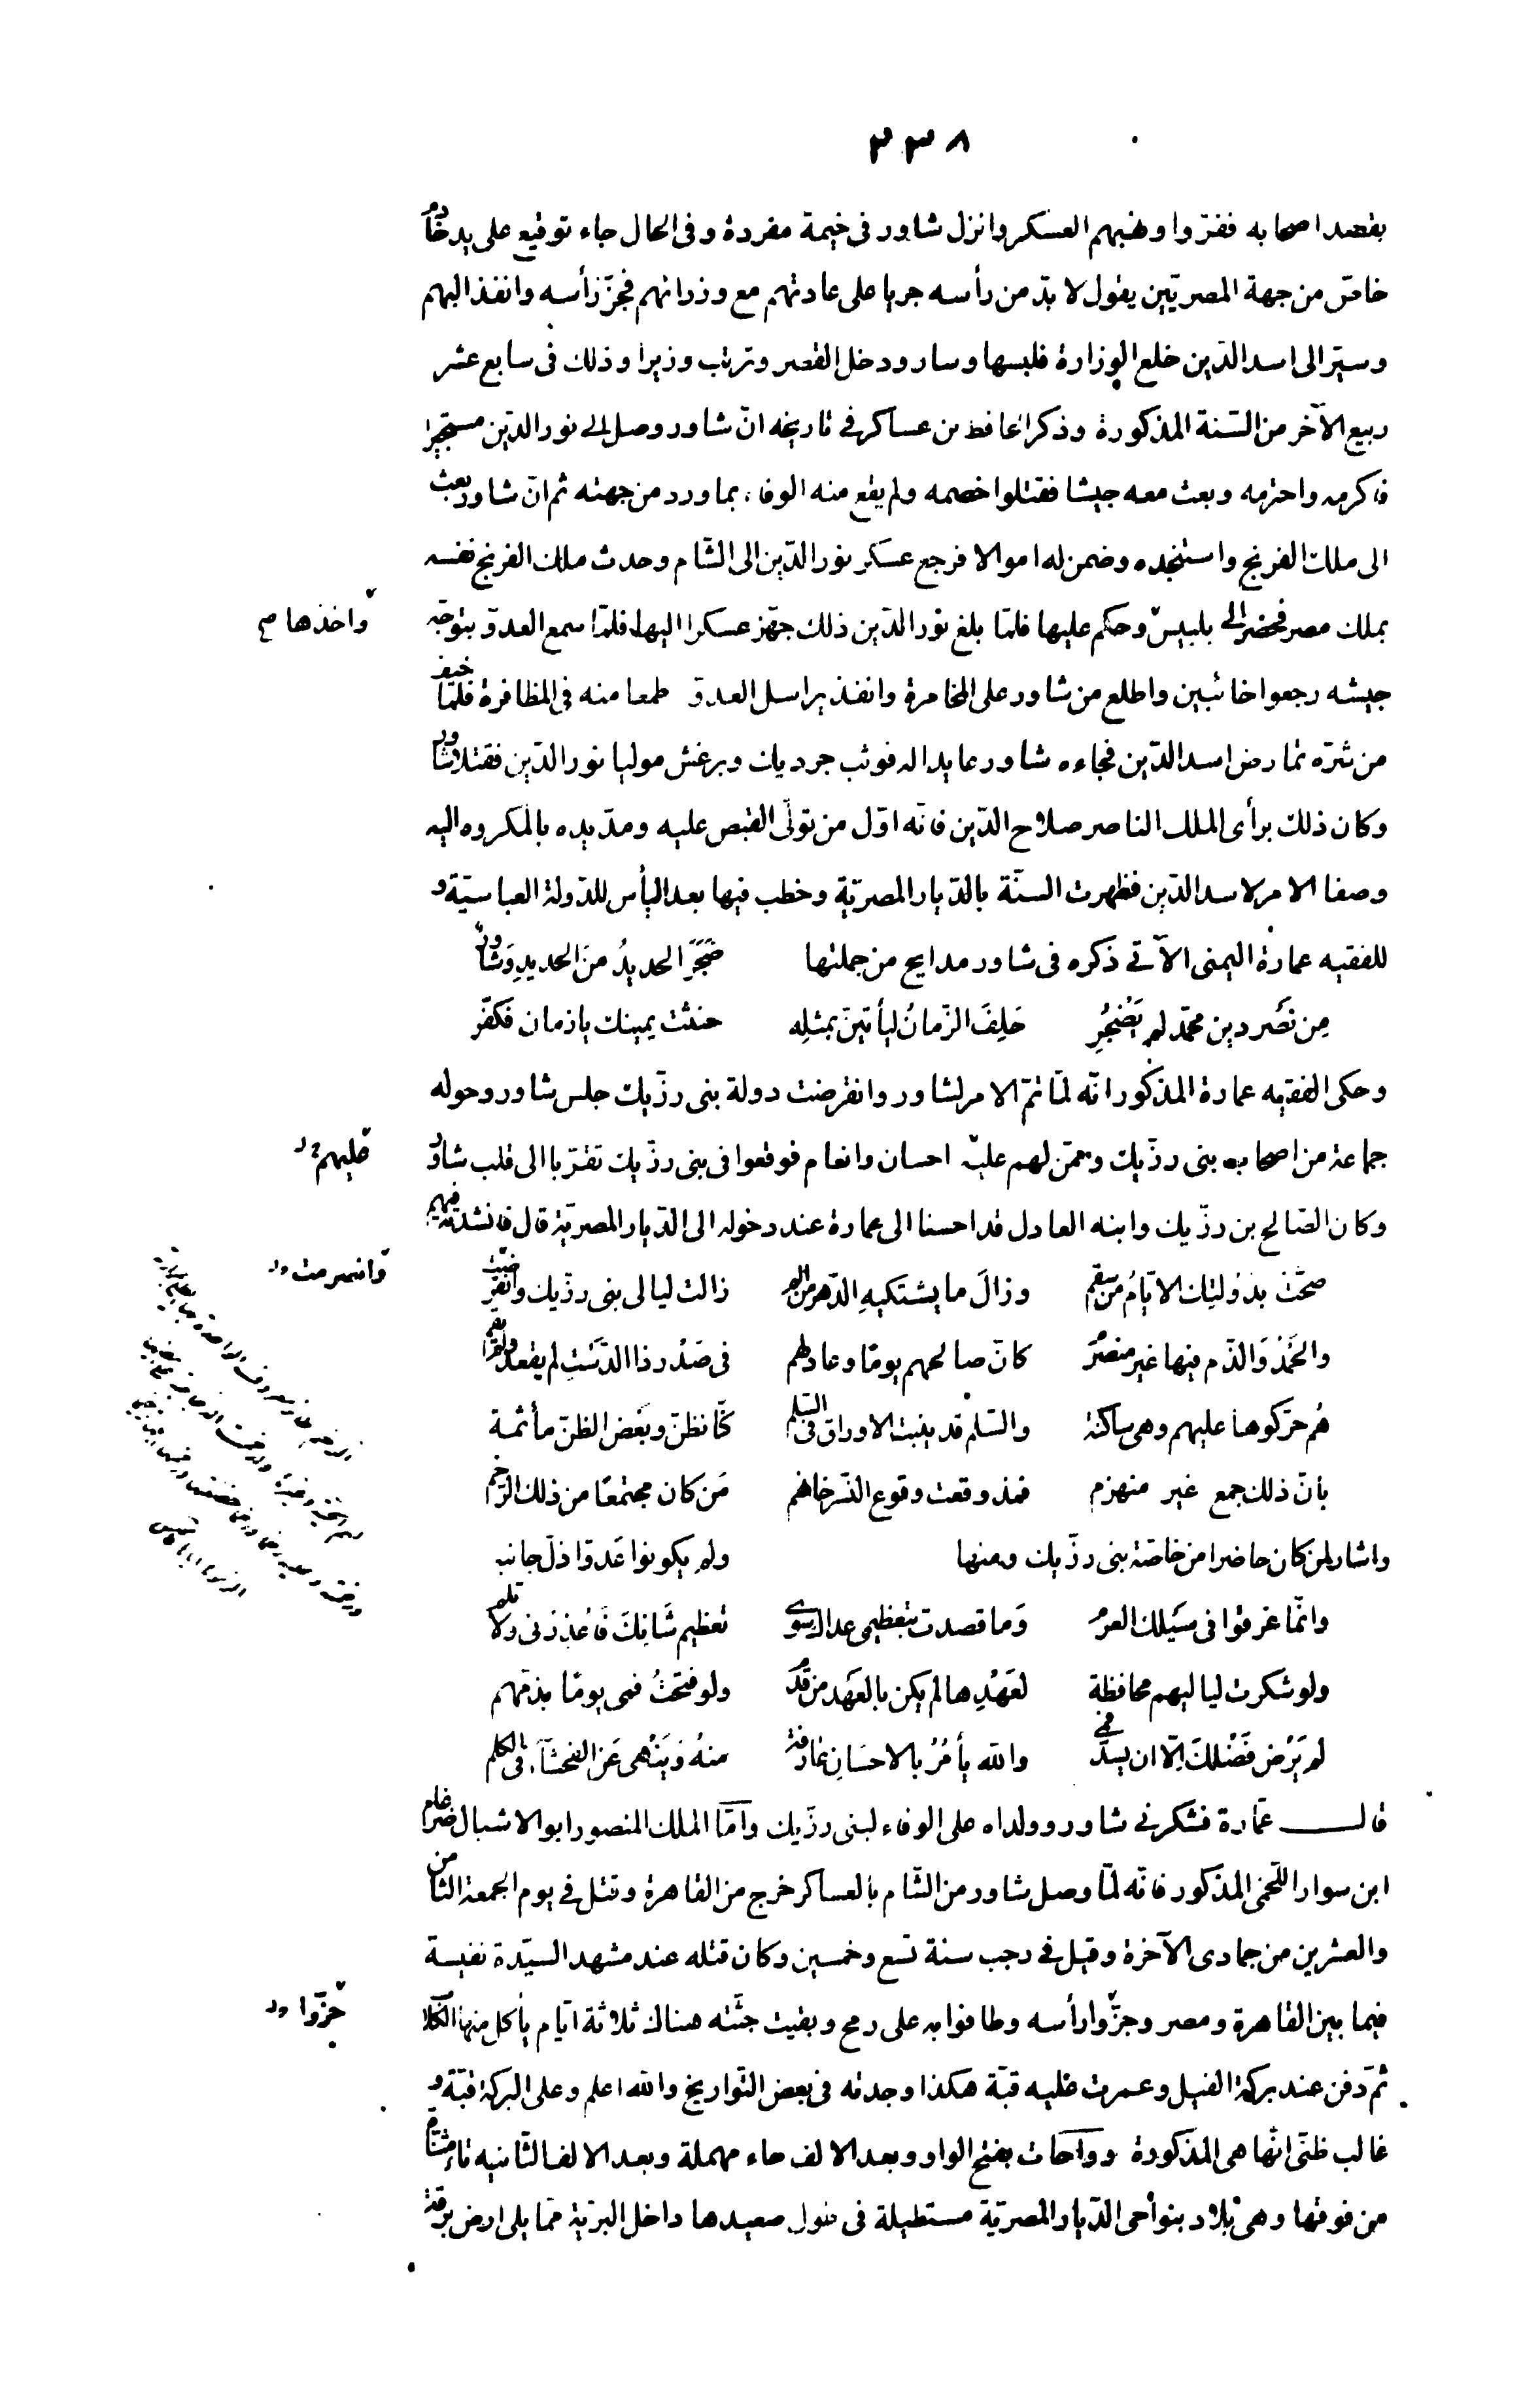 ٣٣٨
بقصد اصحابه ففرّوا ونهبهم العسكر وانزل شاور فى خيمة مفردة وفى الحال جاء توقيع على يد خادم
خاصّ من جهة المصريّين يقول لا بدّ من رأسه جريا على عادتهم مع وزرائهم فجزّ رأسه وانفذ اليهم
وسيّر الى اسد الدّين خلع الوزارة فلبسها وسار ودخل القصر وترتب وزيرا وذلك فى سابع عشر
ربيع الآخر من السّنة المذكورة وذكر الحافظ بن عساكر فى تاريخه انّ شاور وصل الى نور الدّين مستجيرا
فاكرمه واحترمه وبعث معه جيشا فقتلوا خصمه ولم يقع منه الوفاء بما ورد من جهته ثم انّ شاور بعث
الى ملك الفرنج واستنجده وضمن له اموالا فرجع عسكر نور الدّين الى الشّام وحدث ملك الفرنج نفسه
بملك مصر فحضر الى بلبيس وحكم عليها فلمّا بلغ نور الدّين ذلك جهّز عسكرا اليها فلمّا سمع العدوّ بتوجّه
واخذها صح
جيشه رجعوا خائبين واطلع من شاور على المخامرة وانفذ يراسل العدوّ طمعا منه فى المظافرة فلمّا خيف
من شرّه تمارض اسد الدّين فجاءه شاور عايدا له فوثب جرديك وبرغش موليا نور الدّين فقتلا شاور
وكان ذلك برأى الملك الناصر صلاح الدّين فانّه اوّل من تولّى القبض عليه ومدّ يده بالمكروه اليه
وصفا الامر لاسد الدّين فظهرت السنّة بالدّيار المصريّة وخطب فيها بعد اليأس للدّولة العباسيّة و
للفقيه عمارة اليمنى الآتى ذكره فى شاور مدايح من جملتها ضَجَرَ الحديدُ منَ الحديدِ وَشاورٌ
مِن نَصْر دين محمّد لم يَضْجُرِ حَلِفَ الزّمانُ ليأتينّ بمثلِه حنثت يمينك يا زمان فَكفّر
وحكى الفقيه عمارة المذكور انّه لمّا تمّ الامر لشاور وانقرضت دولة بنى رزّيك جلس شاور وحوله
جماعة من اصحاب بنى رزّيك وممّن لهم عليه احسان وانعام فوقعوا فى بنى رزّيك تقرّبا الى قلب شاور
عليهم
وكان الصّالح بن رزّيك وابنه العادل قد احسنا الى عمارة عند دخوله الى الدّيار المصريّة قال فانشدته فيهم
صحّتْ بدَوْلتِك الايّامُ من سقم وزالَ ما يشتكيهِ الدّهر من الم زالت ليالى بنى رزّيك وانقرضت
وانصرمت
والحَمْدُ وَالذّم فيها غير منصرم كانّ صالحهم يومًا وعادلهم فى صَدْر ذا الدّسْتِ لم يقعد ولم يقم
هُم حرّكوها عليهم وهى ساكنة والسّلم قد ينبت الاوراق فى السّلم كنّا نظنّ وبَعْض الظنّ مأثمة
بأنّ ذلك جمع غير منهزم فمذ وقعت وقوع النّسر خانهم مَن كان مجتمعًا من ذلك الرّخم
واشار لمن كان حاضرا من خاصّة بنى رزّيك ومنها ولم يكونوا عَدوّا ذلّ جانبه
وانّما غرقوا فى سَيلك العرم وَما قصدت بتعظيمى عداك سوى تعظيم شَانِكَ فَاعْذِرْنى ولا تلم
ولو شكرت لياليهم محافظة لعَهْدِها لم يكن بالعَهَد من قِدَم ولو فتحْتُ فمى يومًا بذمّهم
لم يَرْض فَضْلكَ الّا ان يسدّ فمى والله يأمُرُ بالاحسَانِ عارفة منهُ وَيَنْهى عَنِ الفحْشَاءِ فى الكلم
قالـــ عمارة فشكرنى شاور وولداه على الوفاء لبنى رزّيك وامّا الملك المنصور ابو الاشبال ضرغام
ابن سوار اللّخمى المذكور فانّه لمّا وصل شاور من الشّام بالعساكر خرج من القاهرة وقتل فى يوم الجمعة الثّامن
والعشرين من جمادى الآخرة وقيل فى رجب سنة تسع وخمسين وكان قتله عند مشهد السيّدة نفيسة
فيما بين القاهرة ومصر وجزّوا رأسه وطافوا به على رمح وبقيت جثّته هناك ثلاثة ايّام يأكل منها الكلاب
جزّوا
ثمّ دفن عند بركة الفيل وعمرت عليه قبّة هكذا وجدته فى بعض التواريخ والله اعلم وعلى البركة قبّة و
غالب ظنّى انّها هى المذكورة وواحات بفتح الواو وبعد الالف حاء مهملة وبعد الالف الثّانيه تاء مثنّاة
من فوقها وهى بلاد بنواحى الدّيار المصريّة مستطيلة فى طول صعيدها داخل البرّية ممّا يلى ارض برقة